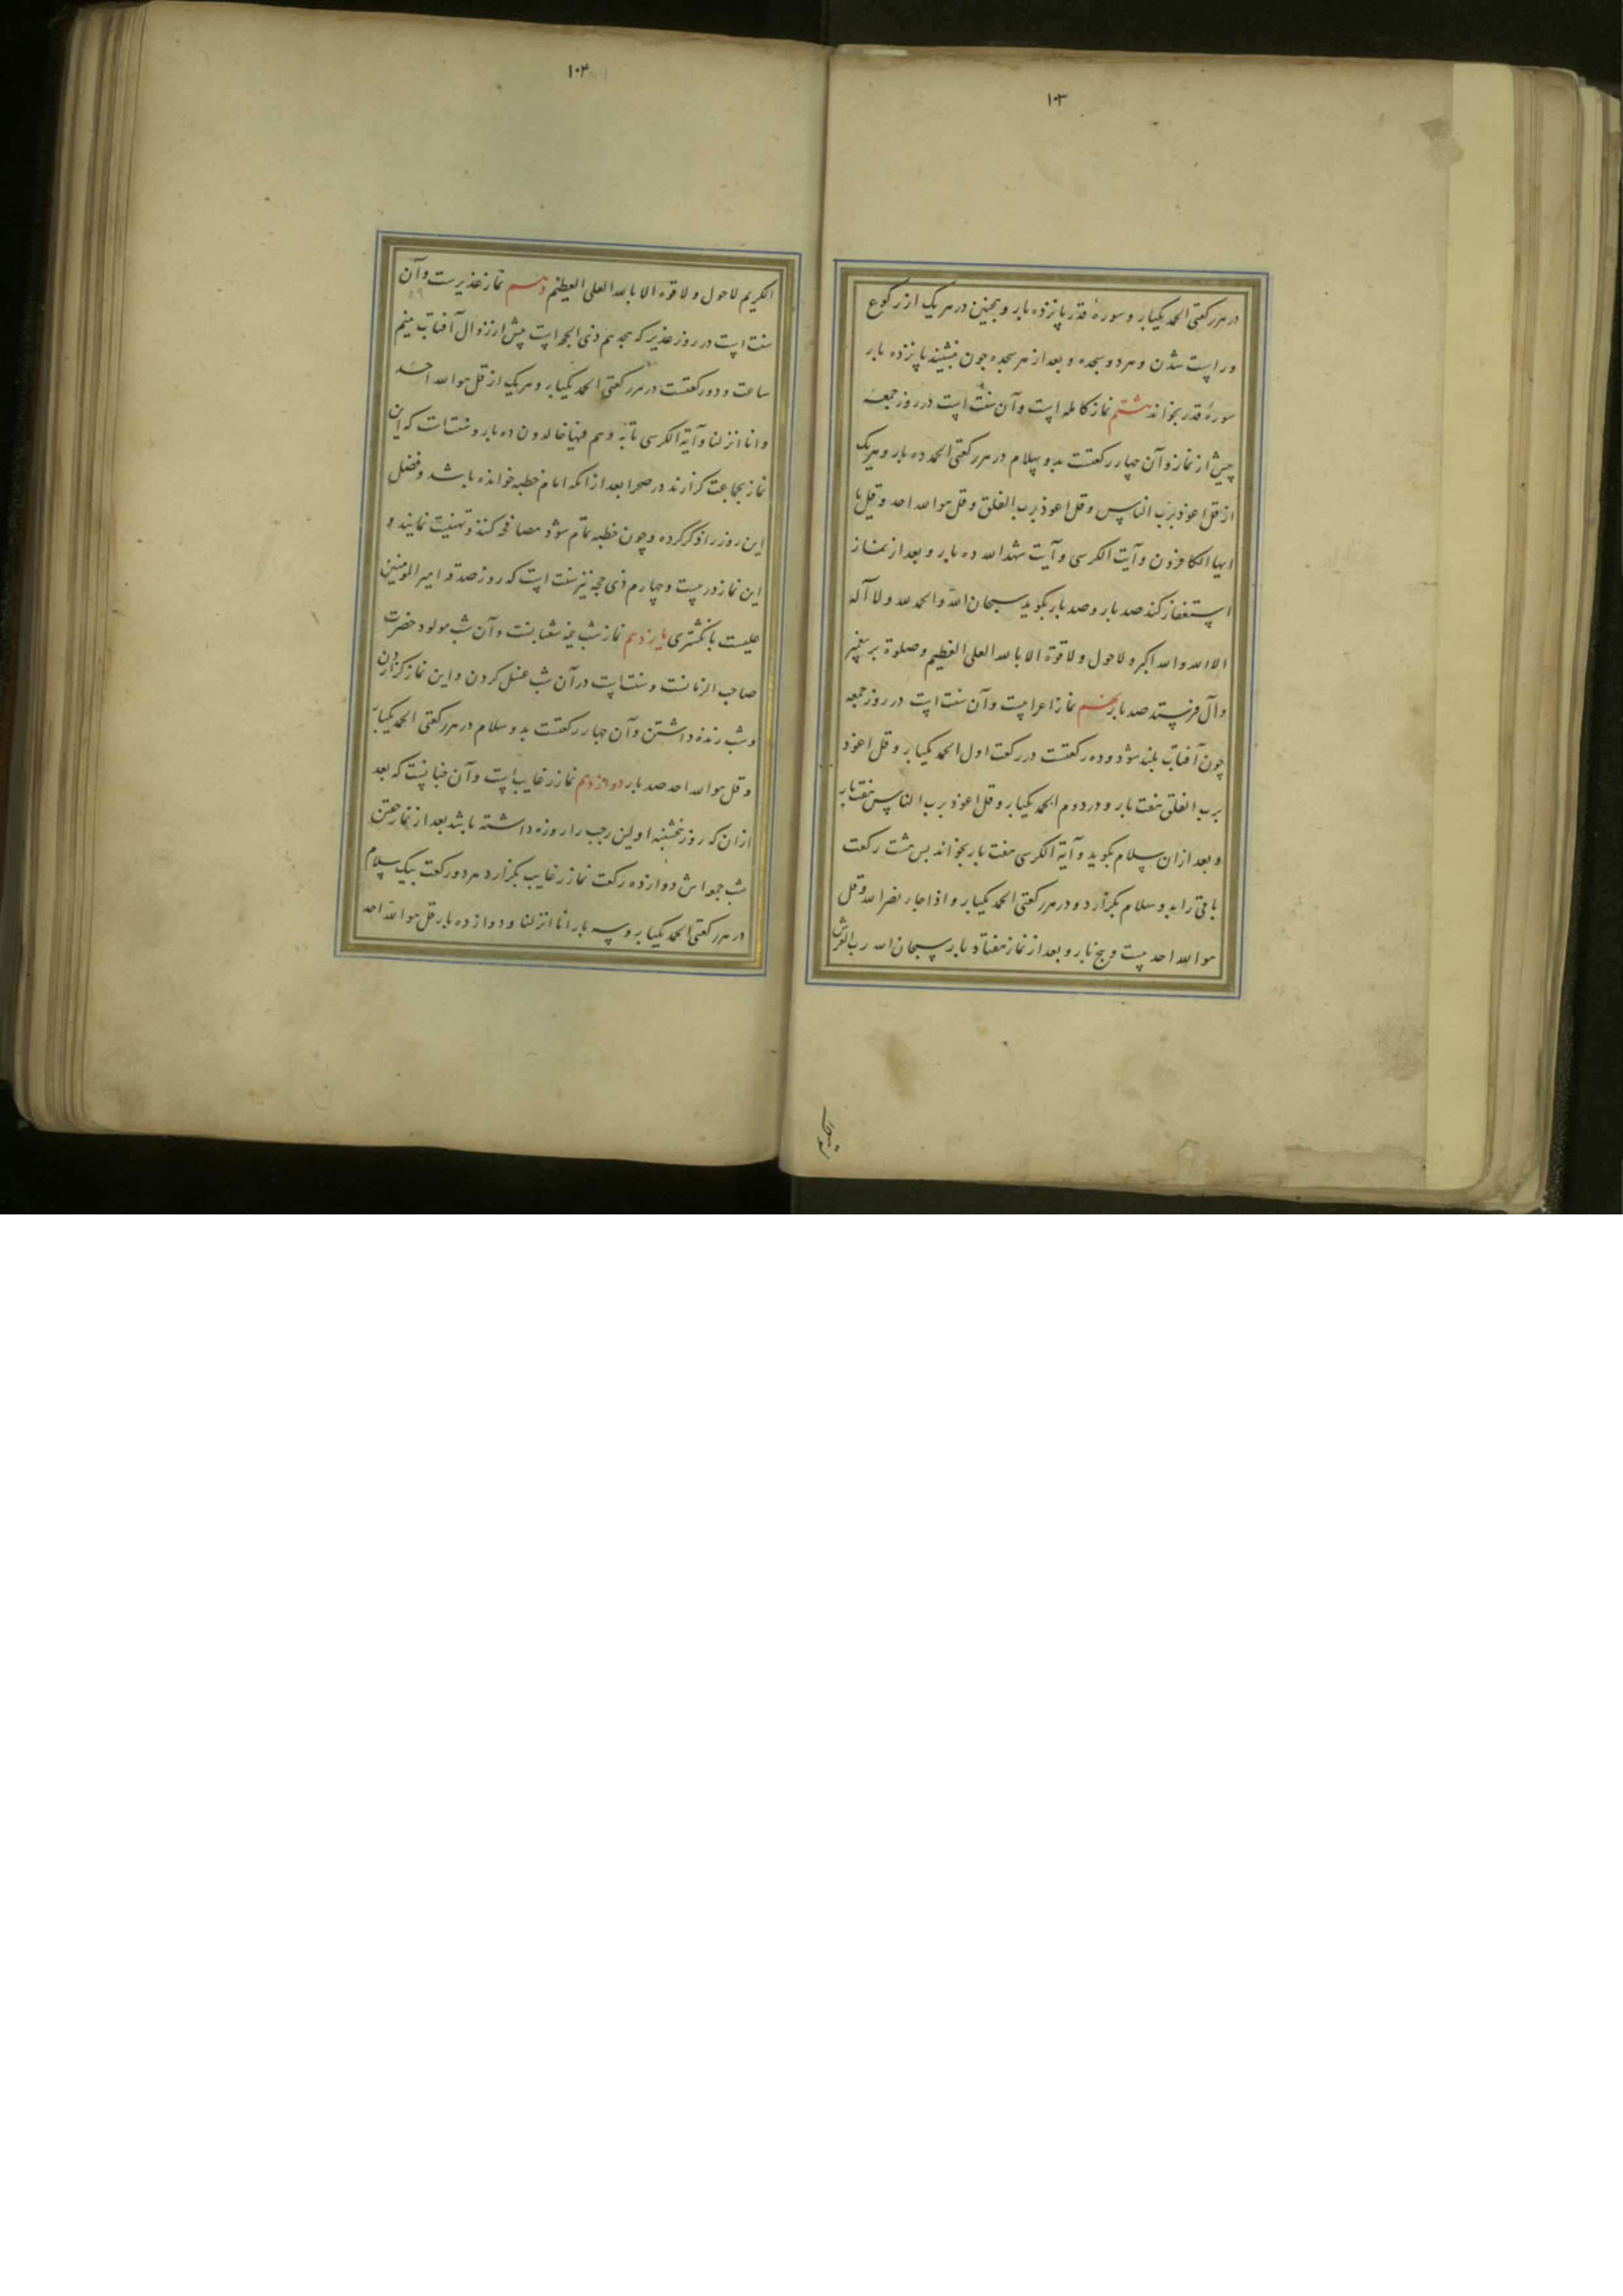 ۱۰۳
در هر رکعتی الحمد یکبار و سورهٔ قدر پانزده بار و همچنین در هر یک از رکوع
و راست شدن و هر دو سجده و بعد از هر سجده چون نبشیند پانزده بار
سورهٔ قدر بخواند هشتم نماز کامله است و آن سنت است در روز جمعه
پیش از نماز و آن چهار رکعتست بدو سلام در هر رکعتی الحمد ده بار و هریک
از قل اعوذ برب الناس و قل اعوذ برب الفلق و قل هو الله احد و قل یا
ایها الکافرون و آیت الکرسی و آیت شهد الله ده بار و بعد از نماز
استغفار کند صد بار و صد بار بگوید سبحان الله و الحمد لله و لا اله
الا الله و الله اکبر و لا حول و لا قوة الا بالله العلی العظیم و صلوة بر پیغمبر
و آل فرستد صد بار نهم نماز اعرابیست و آن سنت است در روز جمعه
چون آفتاب بلند شود و ده رکعتست در رکعت اول الحمد یکبار و قل اعوذ
برب الفلق هفت بار و در دوم الحمد یکبار و قل اعوذ برب الناس هفت بار
و بعد از ان سلام بگوید و آیة الکرسی هفت بار بخواند بس هشت رکعت
باقی را بدو سلام بگزارد و در هر رکعتی الحمد یکبار و اذا جاء نصر الله و قل
هو الله احد بیست و پنج بار و بعد از نماز هفتاد بار سبحان الله رب العرش
الکریم
۱۰۴
الکریم لا حول و لا قوة الا بالله العلی العظیم دهم نماز غدیرست و آن
سنت است در روز غدیر که هجدهم ذی الحجه است پیش از زوال آفتاب بنیم
ساعت و دو رکعتست در هر رکعتی الحمد یکبار و هریک از قل هو الله احد
و انا انزلنا و آیة الکرسی تا به وهم فیها خالدون ده بار و سنت است که این
نماز بجماعت گزارند در صحرا بعد از انکه امام خطبه خوانده باشد و فضل
این روز را ذکر کرده و چون خطبه تمام شود مصافحه کنند و تهنیت نمایند و
این نماز در بیست و چهارم ذی حجه نیز سنت است که روز صدقه امیر المومنین
علیست بانکشتری یازدهم نماز شب نیمه شعبانست و آن شب مولود حضرت
صاحب الزمانست و سنت است در آن شب غسل کردن و این نماز گزاردن
و شب زنده داشتن و آن چهار رکعتست بدو سلام در هر رکعتی الحمد یکبار
و قل هو الله احد صد بار دوازدهم نماز رغایب است و آن چنانست که بعد
از ان که روز پنجشنبه اولین رجب را روزه داشته باشد بعد از نماز خفتن
شب جمعه اش دوازده رکعت نماز رغایب بگزارد هر دو رکعت بیک سلام
در هر رکعتی الحمد یکبار و سه بار انا انزلنا و دوازده بار قل هو الله احد